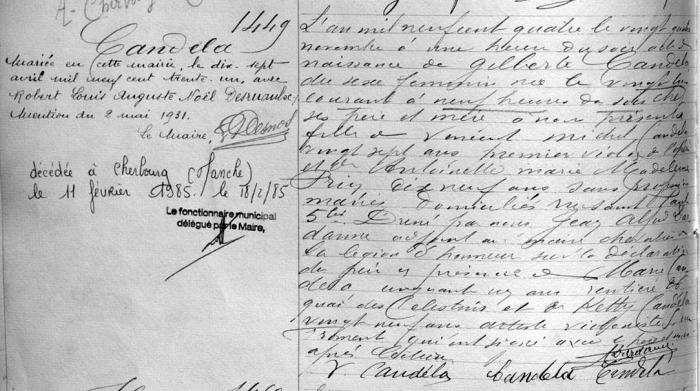 A- Cherbourg
1449
Candela
Mariée en cette mairie, le dix-sept
avril mil neuf cent trente un, avec
Robert Louis Auguste Noël
Mention du 2 mai 1931.
Le Maire,
décédée à Cherbourg (Manche)
le 11 février 1985. le 18/2/85
Le fonctionnaire municipal
délégué par le Maire,
L'an mil neuf cent quatre le vingt
novembre à une heure du soir acte de
naissance de Gilberte Candela
du sexe féminin née le vingt
courant à neuf heures du chez
ses père et mère à nous présentée
fille de Vincent Michel Candela
vingt sept ans premier violon
et de Antoinette Marie Madeleine
dix neuf ans sans profession
mariés domiciliés
5 bis Dressé par nous Jean
adjoint au maire chevalier de
la légion d'honneur sur la déclaration
du père en présence de Marie Can
dela cinquante ans rentière
quai des Célestins et de Ketty Candela
vingt neuf ans artiste violoniste
qui ont signé avec
après lecture
V Candela Candela Candela